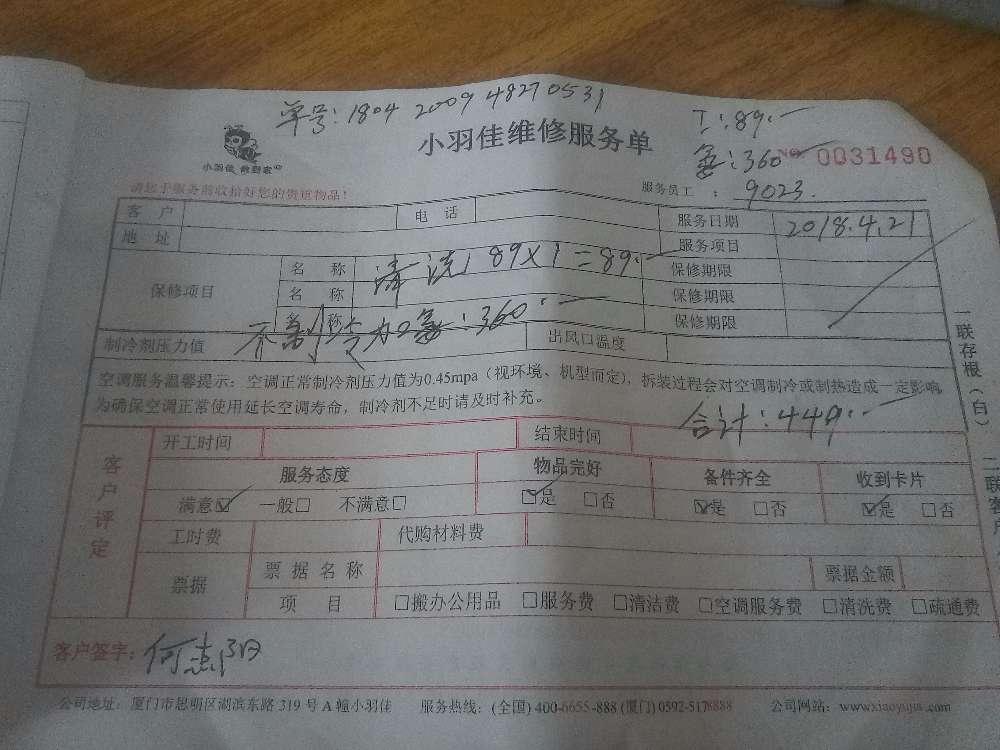 单号:1804 2009 48270531
工:89.一
小羽佳维修服务单
氟:360 一
NO. 0031490
小羽佳 做到家
请您于服务前收拾好您的贵重物品!
服务员工 : 9023.
客 户 电 话 服务日期 2018.4.21
地 址 服务项目
保修项目 名 称 清洗 89X1=89.一 保修期限
名 称 保修期限
名 称 不制冷加氟:360.一 保修期限
制冷剂压力值 出风口温度
空调服务温馨提示:空调正常制冷剂压力值为0.45mpa(视环境、机型而定),拆装过程会对空调制冷或制热造成一定影响
为确保空调正常使用延长空调寿命,制冷剂不足时请及时补充。
合计:449.一
开工时间 结束时间
客户评定
服务态度 物品完好 备件齐全 收到卡片
满意☑ 一般□ 不满意□ ☑是 □否 ☑是 □否 ☑是 □否
工时费 代购材料费
票据 票据名称 票据金额
项 目 □搬办公用品 □服务费 □清洁费 □空调服务费 □清洗费 □疏通费
客户签字: 何惠阳
公司地址:厦门市思明区湖滨东路 319 号 A 幢小羽佳 服务热线:(全国) 400-6655-888 (厦门) 0592-5178888 公司网站:www.xiaoyujia.com
一联存根(白)
二联客